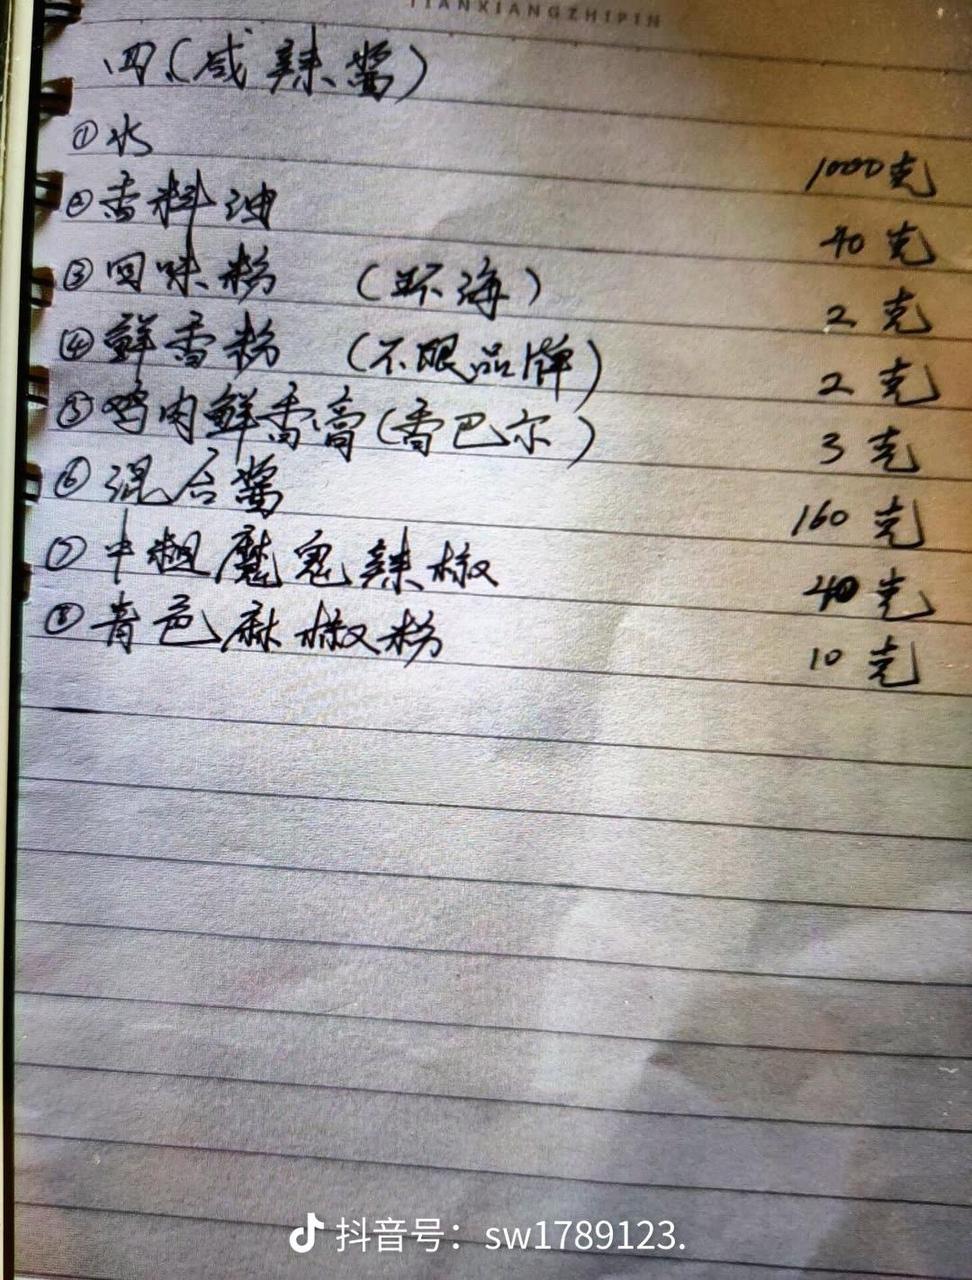 TIANXIANGZHIPIN
四(咸辣酱)
①水 1000克
②香料油 40克
③回味粉 (环海) 2克
④鲜香粉 (不限品牌) 2克
⑤鸡肉鲜香膏(香巴尔) 3克
⑥混合酱 160克
⑦中粗魔鬼辣椒 40克
⑧青色麻椒粉 10克
抖音号：sw1789123.